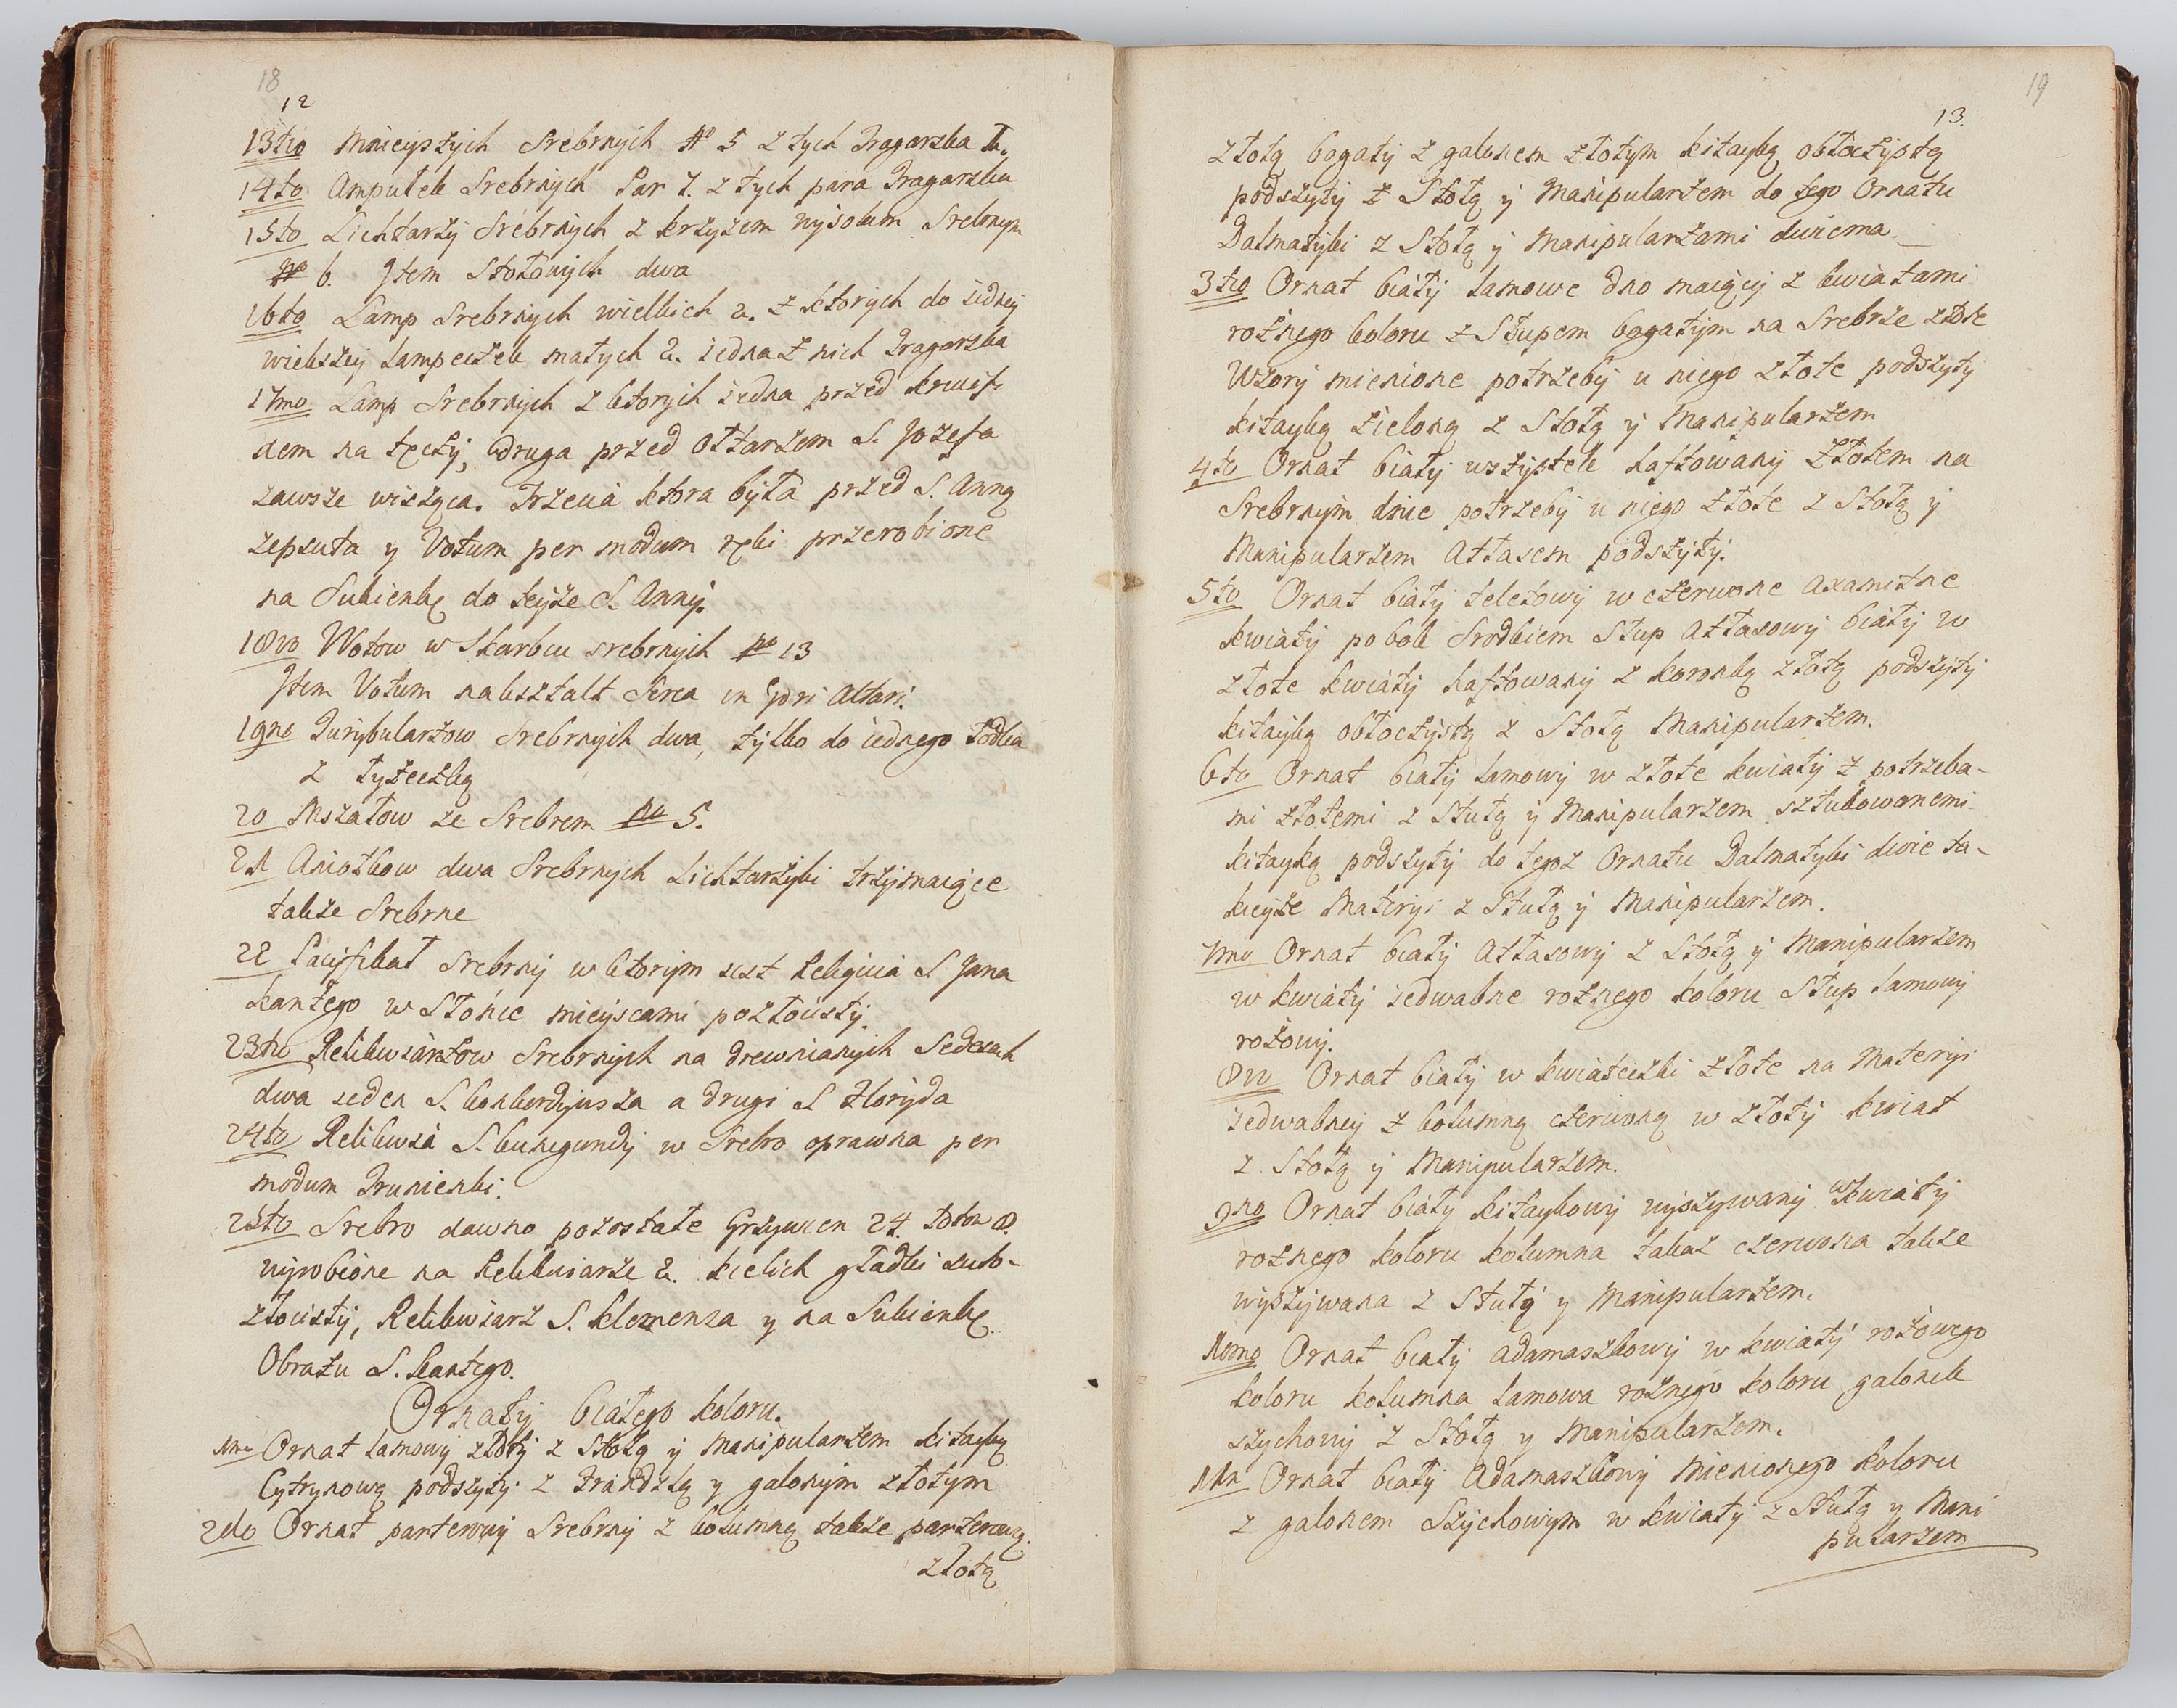 18
12
13tio Mnieyszych Srebrnych No 5 z tych Dragarska 1.
14to Ampułek Srebrnych Par 7. z tych para Dragarska
15to Lichtarzy Srebrnych z krzyżem wysokim Srebrnym
No 6. Item Stołowych dwa
16to Lamp Srebrnych wielkich 2. z ktorych do iedney
większey lampeczek małych 2. iedna z nich Dragarska
17mo Lamp Srebrnych z ktorych iedna przed krucifi
xem na tęczy, druga przed Ołtarzem S. Jozefa
zawsze wisząca. Trzecia ktora była przed S. Anną
zepsuta y Votum per modum ręki przerobione
na Sukienkę do teyże S. Anny.
18vo Wotow w Skarbcu srebrnych No 13
Item Votum na kształt Serca in Altari.
19no Turybularzow Srebrnych dwa, tylko do iednego łodka
z łyżeczką
20 Mszałow ze Srebrem No 5.
21 Aniołkow dwa Srebrnych Lichtarzyki trzymaiące
także Srebrne
22 Pacyfikał srebrny w ktorym iest Religiia S Jana
Kantego w Słońce mieyscami pozłocisty.
23tio Relikwiarzow Srebrnych na drewnianych Sedesach
dwa ieden S. a drugi S Floryda
24to Relikwia S. Kunegundy w Srebro oprawna per
modum Trunienki.
25to Srebro dawno pozostałe Grzywien 24. łotow 8.
wyrobione na Relikwiarze 2. kielich gładki sub-
złocisty, Relikwiarz S. Klemensa y na Sukienkę
Obrazu S. Kantego.
Ornaty białego koloru.
1mo Ornat lamowy złoty z Stołą y Manipularzem kitayką
Cytrynową podszyty z frandzlą y galonym złotym
2do Ornat parterowy Srebrny z kolumną także parterową
złotą
19
13.
złotą bogaty z galonem złotym kitayką obłoczystą
podszyty z Stołą y Manipularzem do tego Ornatu
Dalmatyki z Stołą y Manipularzami dwiema
3tio Ornat biały lamowe dno maiący z kwiatami
rożnego koloru z Słupem bogatym na Srebrze złote
Wzory mienione potrzeby u niego złote podszyty
kitayką zieloną z Stołą y Manipularzem
4to Ornat biały wszystek haftowany Złotem na
Srebrnym dnie potrzeby u niego złote z Stołą y
Manipularzem Atłasem podszyty.
5to Ornat biały teletowy w czerwone axamitne
kwiaty po bok Srodkiem Słup Atłasowy biały w
złote kwiaty haftowany z koronką złotą podszyty
kitayką obłoczystą z Stołą Manipularzem.
6to Ornat biały lamowy w złote kwiaty z potrzeba-
mi złotemi z Stułą y Manipularzem sztukowanemi
kitayką podszyty do tegoz Ornatu Dalmatyki dwie ta-
kieyże Materyi z Stułą y Manipularzem.
7mo Ornat biały Atłasowy z Stołą y Manipularzem
w kwiaty iedwabne rożnego koloru Słup lamowy
rożowy.
8vo Ornat biały w kwiateczki złote na Materyi
iedwabney z kolumną czerwoną w złoty kwiat
z Stołą y Manipularzem.
9no Ornat biały kitaykowy wyszywany w kwiaty
rożnego koloru kolumna takaż czerwona także
wyszywana z Stułą y Manipularzem.
10mo Ornat biały adamaszkowy w kwiaty rożowego
koloru kolumna lamowa rożnego koloru galonek
szychowy z Stołą y Manipularzem.
11m Ornat biały Adamaszkowy mienionego koloru
z galonem Szychowym w kwiaty z Stułą y Mani
pularzem